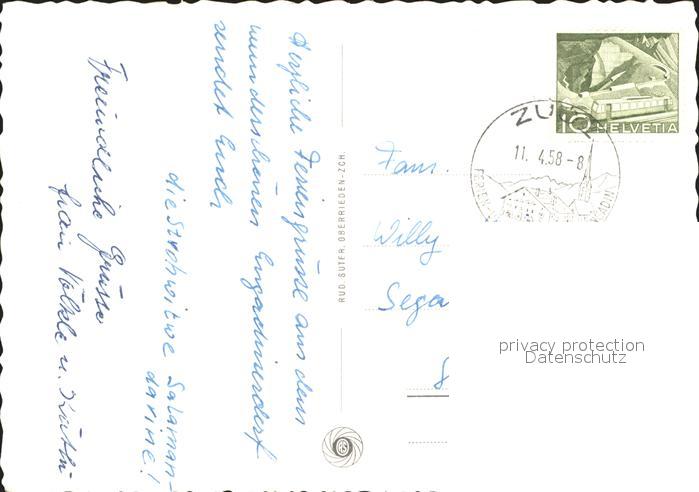 Herzliche Feriengrüsse aus dem
wunderschönen Engadinerdorf
sendet Euch
die Strohwitwe Salaman-
darine!
Freundliche Grüsse
RUD. SUTER, OBERRIEDEN-ZCH.
10 HELVETIA
ZUOZ
11. 4.58 - 8
FERIEN
Fam.
Willy
privacy protection
Datenschutz